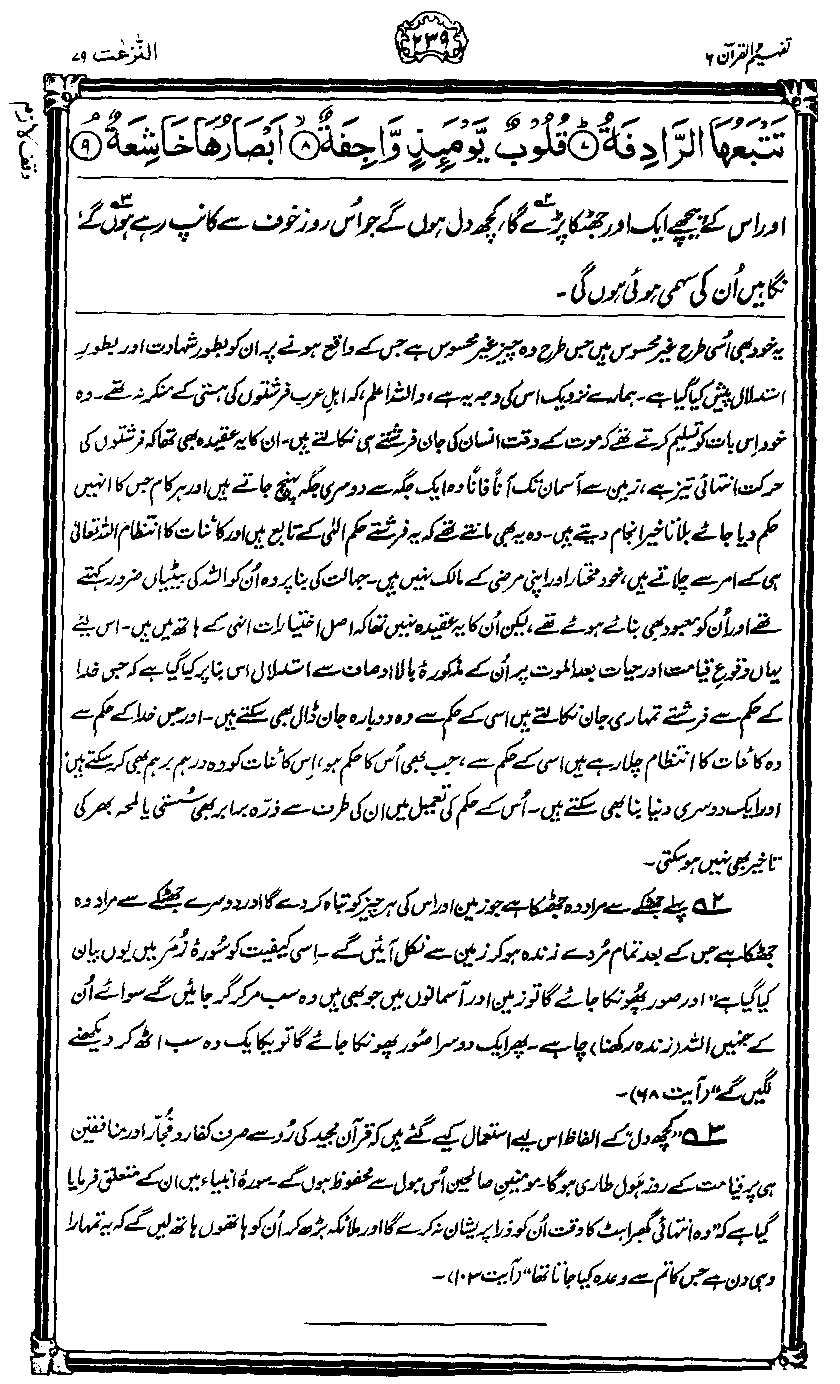 تفہیم القرآن ۶
۲۳۹
النّٰزعٰت ۷۹
تَتْبَعُهَا الرَّادِفَةُ ۷ قُلُوْبٌ يَّوْمَئِذٍ وَّاجِفَةٌ ۸ اَبْصَارُهَا خَاشِعَةٌ ۹
وقف لازم
اور اس کے پیچھے ایک اور جھٹکا پڑے گا۲، کچھ دل ہوں گے جو اُس روز خوف سے کانپ رہے ہوں گے۳،
نگاہیں اُن کی سہمی ہوئی ہوں گی۔
یہ خود بھی اُسی طرح غیر محسوس ہیں جس طرح وہ چیز غیر محسوس ہے جس کے واقع ہونے پر ان کو بطور شہادت اور بطورِ
استدلال پیش کیا گیا ہے۔ ہمارے نزدیک اس کی وجہ یہ ہے، واللہ اعلم، کہ اہلِ عرب فرشتوں کی ہستی کے منکر نہ تھے۔ وہ
خود اِس بات کو تسلیم کرتے تھے کہ موت کے وقت انسان کی جان فرشتے ہی نکالتے ہیں۔ ان کا یہ عقیدہ بھی تھا کہ فرشتوں کی
حرکت انتہائی تیز ہے، زمین سے آسمان تک آناً فاناً وہ ایک جگہ سے دوسری جگہ پہنچ جاتے ہیں اور ہر کام جس کا انہیں
حکم دیا جائے بلا تاخیر انجام دیتے ہیں۔ وہ یہ بھی مانتے تھے کہ یہ فرشتے حکم الٰہی کے تابع ہیں اور کائنات کا انتظام اللہ تعالیٰ
ہی کے امر سے چلاتے ہیں، خود مختار اور اپنی مرضی کے مالک نہیں ہیں۔ جہالت کی بنا پر وہ اُن کو اللہ کی بیٹیاں ضرور کہتے
تھے اور اُن کو معبود بھی بنائے ہوئے تھے، لیکن اُن کا یہ عقیدہ نہیں تھا کہ اصل اختیارات انہی کے ہاتھ میں ہیں۔ اس لیے
یہاں وقوعِ قیامت اور حیات بعد الموت پر اُن کے مذکورۂ بالا اوصاف سے استدلال اس بنا پر کیا گیا ہے کہ جس خدا
کے حکم سے فرشتے تمہاری جان نکالتے ہیں اسی کے حکم سے وہ دوبارہ جان ڈال بھی سکتے ہیں۔ اور جس خدا کے حکم سے
وہ کائنات کا انتظام چلا رہے ہیں اسی کے حکم سے، جب بھی اُس کا حکم ہو، اِس کائنات کو وہ درہم برہم بھی کر سکتے ہیں،
اور ایک دوسری دنیا بنا بھی سکتے ہیں۔ اُس کے حکم کی تعمیل میں ان کی طرف سے ذرّہ برابر بھی سُستی یا لمحہ بھر کی
تاخیر بھی نہیں ہو سکتی۔
۲ پہلے جھٹکے سے مراد وہ جھٹکا ہے جو زمین اور اس کی ہر چیز کو تباہ کر دے گا اور دوسرے جھٹکے سے مراد وہ
جھٹکا ہے جس کے بعد تمام مُردے زندہ ہو کر زمین سے نکل آئیں گے۔ اِسی کیفیت کو سُورۂ زُمَر میں یوں بیان
کیا گیا ہے ”اور صور پھونکا جائے گا تو زمین اور آسمانوں میں جو بھی ہیں وہ سب مر کر گر جائیں گے سوائے اُن
کے جنہیں اللہ (زندہ رکھنا) چاہے۔ پھر ایک دوسرا صُور پھونکا جائے گا تو یکایک وہ سب اٹھ کر دیکھنے
لگیں گے“ (آیت ۶۸)۔
۳ ”کچھ دل“ کے الفاظ اس لیے استعمال کیے گئے ہیں کہ قرآن مجید کی رُو سے صرف کفار و فُجّار اور منافقین
ہی پر قیامت کے روز ہَول طاری ہوگا۔ مومنین صالحین اُس ہول سے محفوظ ہوں گے۔ سورۂ انبیاء میں ان کے متعلق فرمایا
گیا ہے کہ ”وہ انتہائی گھبراہٹ کا وقت اُن کو ذرا پریشان نہ کرے گا اور ملائکہ بڑھ کر اُن کو ہاتھوں ہاتھ لیں گے کہ یہ تمہارا
وہی دن ہے جس کا تم سے وعدہ کیا جاتا تھا“ (آیت ۱۰۳)۔